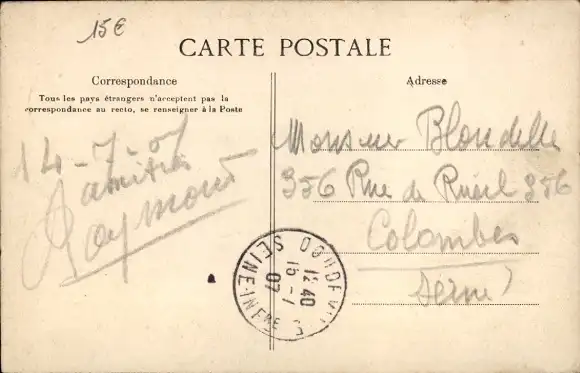 15€
CARTE POSTALE
Correspondance
Tous les pays étrangers n'acceptent pas la
correspondance au recto, se renseigner à la Poste
14-7-07
amitiés
Raymond
Adresse
Monsieur Blondelle
356 Rue de Rueil 356
Colombes
Seine)
12 40
15 - 7
07
SEINE-INFRE